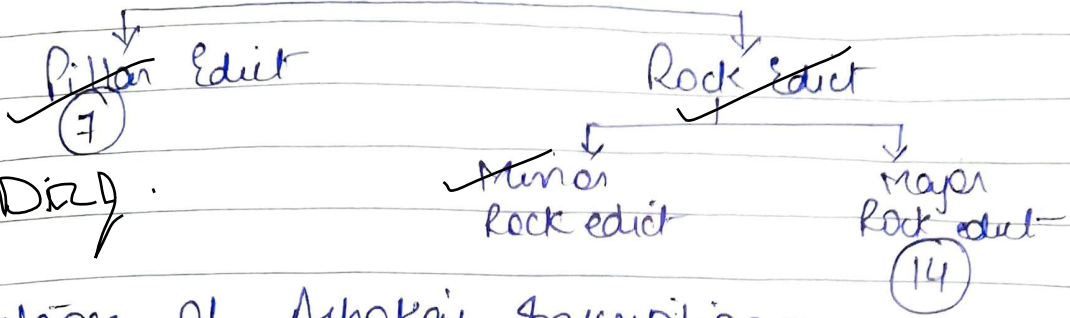 Pillar Edict Rock Edict
7
Minor Major
Rock edict Rock edict
14
of Ashoka's